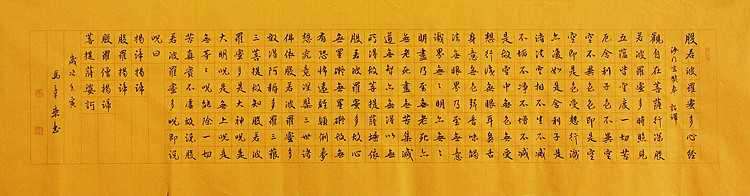 般若波羅蜜多心經
沙門玄奘奉 詔譯
觀自在菩薩行深般
若波羅蜜多時照見
五蘊皆空度一切苦
厄舍利子色不異空
空不異色色即是空
空即是色受想行識
亦復如是舍利子是
諸法空相不生不滅
不垢不淨不增不減
是故空中無色無受
想行識無眼耳鼻舌
身意無色聲香味觸
法無眼界乃至無意
識界無無明亦無無
明盡乃至無老死亦
無老死盡無苦集滅
道無智亦無得以無
所得故菩提薩埵依
般若波羅蜜多故心
無罣礙無罣礙故無
有恐怖遠離顛倒夢
想究竟涅槃三世諸
佛依般若波羅蜜多
故得阿耨多羅三藐
三菩提故知般若波
羅蜜多是大神咒是
大明咒是無上咒是
無等等咒能除一切
苦真實不虛故說般
若波羅蜜多咒即說
咒曰
揭諦揭諦
般羅揭諦
般羅僧揭諦
菩提薩婆訶
歲次壬寅